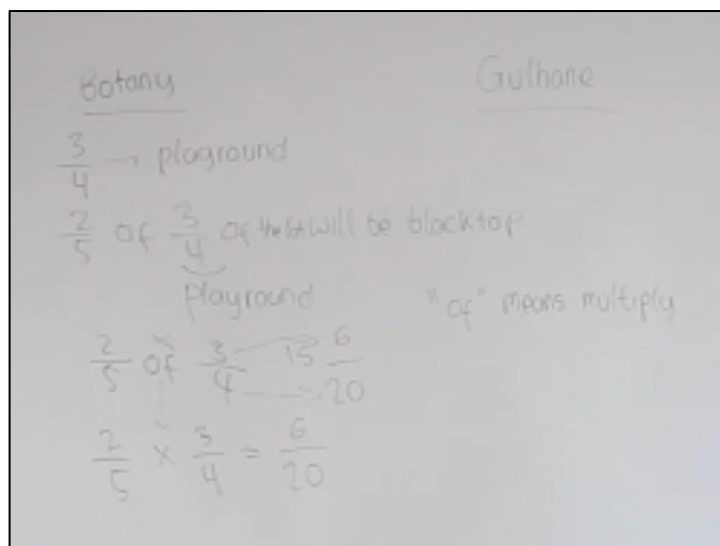 Botany
Gulhane
3/4 → plaground
2/5 of 3/4 of the lot will be blacktop
playround
"of" means multiply
2/5 of 3/4 is 6/20
2/5 × 3/4 = 6/20